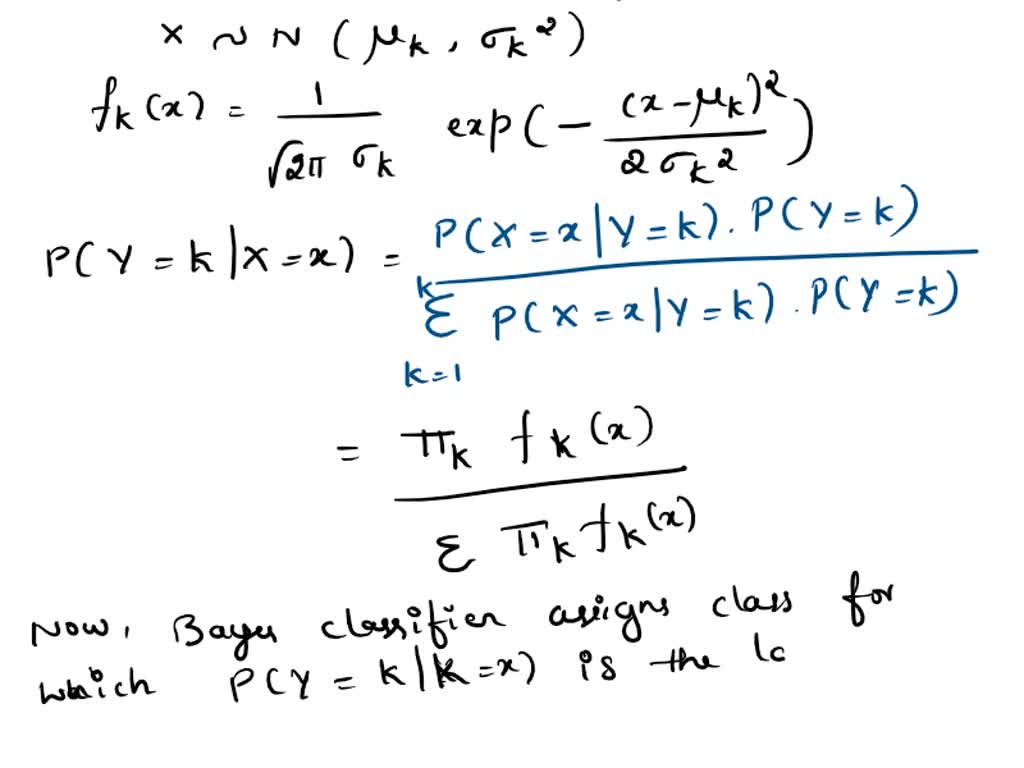 x ~ N (μk, σk²)
fk(x) = 1 / √2π σk exp(- (x-μk)² / 2σk²)
P(Y = k | X = x) = P(X = x | Y = k). P(Y = k) / k Σ k=1 P(X = x | Y = k). P(Y = k)
= πk fk(x) / Σ πk fk(x)
Now, Bayes classifier assigns class for
which P(Y = k | X = x) is the la